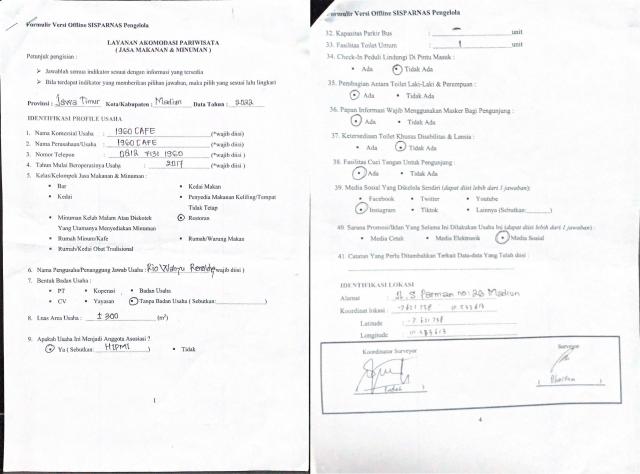 Formulir Versi Offline SISPARNAS Pengelola
LAYANAN AKOMODASI PARIWISATA
( JASA MAKANAN & MINUMAN )
Petunjuk pengisian :
➤ Jawablah semua indikator sesuai dengan informasi yang tersedia
➤ Bila terdapat indikator yang memberikan pilihan jawaban, maka pilih yang sesuai lalu lingkari
Provinsi : Jawa Timur Kota/Kabupaten : Madiun Data Tahun : 2022
IDENTIFIKASI PROFILE USAHA
1. Nama Komersial Usaha : 1960 CAFE (*wajib diisi)
2. Nama Perusahaan/Usaha : 1960 CAFE (*wajib diisi)
3. Nomor Telepon : 0812 7131 1960 (*wajib diisi)
4. Tahun Mulai Beroperasinya Usaha : 2017 (*wajib diisi)
5. Kelas/Kelompok Jasa Makanan & Minuman :
• Bar • Kedai Makan
• Kedai • Penyedia Makanan Keliling/Tempat
Tidak Tetap
• Minuman Kelab Malam Atau Diskotek • Restoran
Yang Utamanya Menyediakan Minuman
• Rumah Minum/Kafe • Rumah/Warung Makan
• Rumah/Kedai Obat Tradisional
6. Nama Pengusaha/Penanggung Jawab Usaha : Rio Wahyu (*wajib diisi )
7. Bentuk Badan Usaha :
• PT • Koperasi • Badan Usaha
• CV • Yayasan • Tanpa Badan Usaha ( Sebutkan: )
8. Luas Area Usaha : ± 300 (m²)
9. Apakah Usaha Ini Menjadi Anggota Asosiasi ?
• Ya ( Sebutkan: HIPMI ) • Tidak
1
Formulir Versi Offline SISPARNAS Pengelola
32. Kapasitas Parkir Bus : – unit
33. Fasilitas Toilet Umum : 1 unit
34. Check-In Peduli Lindungi Di Pintu Masuk :
• Ada • Tidak Ada
35. Pembagian Antara Toilet Laki-Laki & Perempuan :
• Ada • Tidak Ada
36. Papan Informasi Wajib Menggunakan Masker Bagi Pengunjung :
• Ada • Tidak Ada
37. Ketersediaan Toilet Khusus Disabilitas & Lansia :
• Ada • Tidak Ada
38. Fasilitas Cuci Tangan Untuk Pengunjung :
• Ada • Tidak Ada
39. Media Sosial Yang Dikelola Sendiri (dapat diisi lebih dari 1 jawaban):
• Facebook • Twitter • Youtube
• Instagram • Tiktok • Lainnya (Sebutkan: )
40. Sarana Promosi/Iklan Yang Selama Ini Dilakukan Usaha Ini (dapat diisi lebih dari 1 jawaban) :
• Media Cetak • Media Elektronik • Media Sosial
41. Catatan Yang Perlu Ditambahkan Terkait Data-data Yang Telah diisi :
IDENTIFIKASI LOKASI
Alamat : Jl. S Parman no: 28 Madiun
Koordinat lokasi :
Latitude :
Longitude :
Koordinator Surveyor Surveyor
4